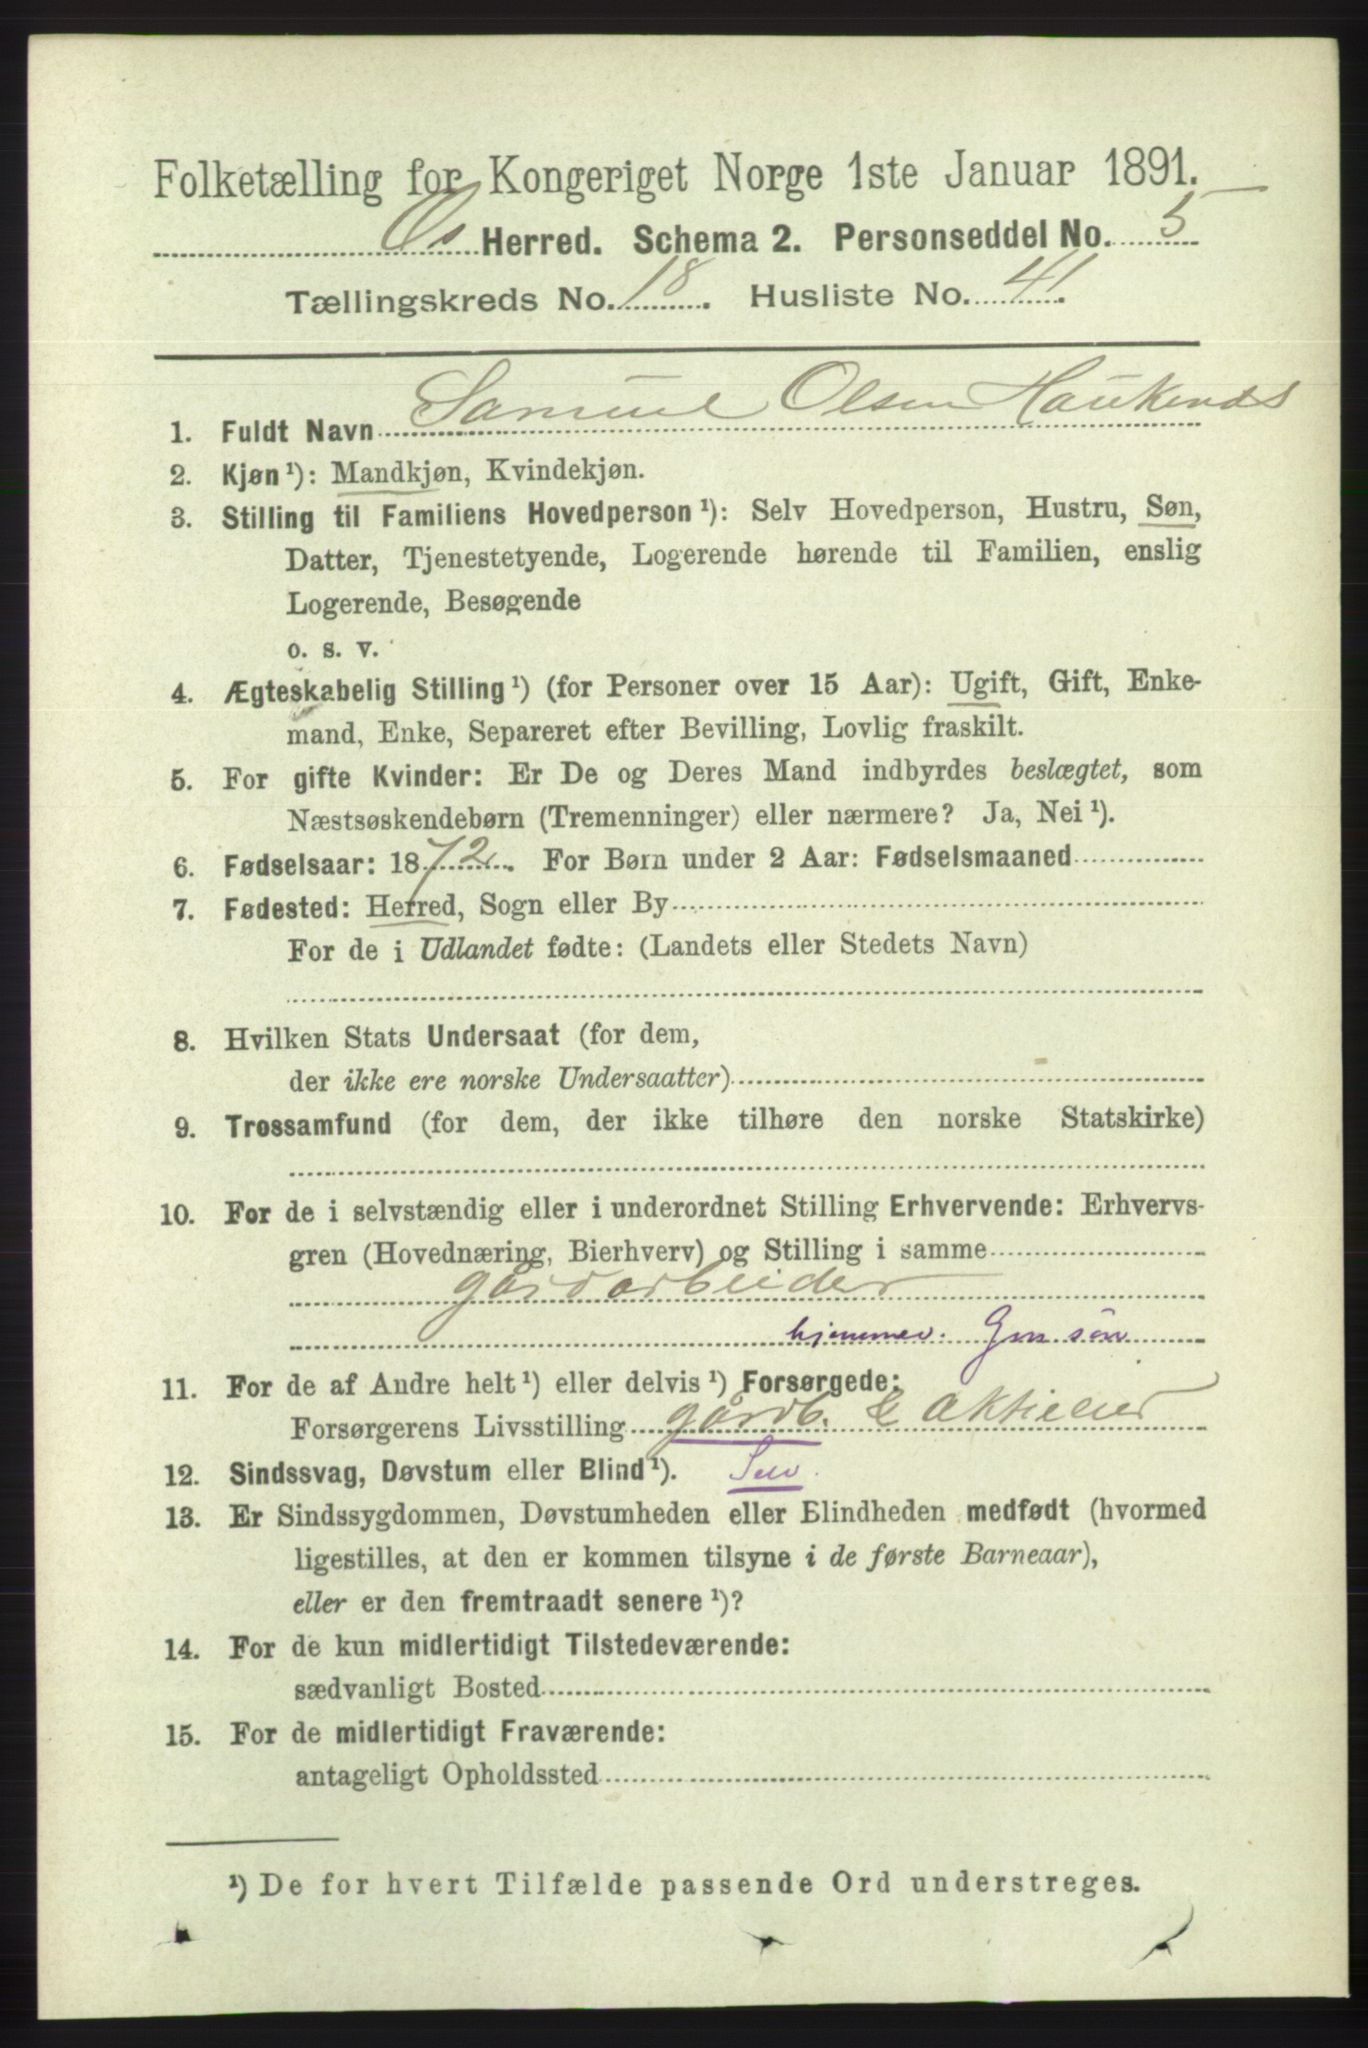 Folketælling for Kongeriget Norge 1ste Januar 1891.
Os Herred. Schema 2. Personseddel No. 5
Tællingskreds No. 18. Husliste No. 41.
1. Fuldt Navn Samuel Olsen Haukenæs
2. Kjøn ¹): Mandkjøn, Kvindekjøn.
3. Stilling til Familiens Hovedperson ¹): Selv Hovedperson, Hustru, Søn,
Datter, Tjenestetyende, Logerende hørende til Familien, enslig
Logerende, Besøgende
o. s. v.
4. Ægteskabelig Stilling ¹) (for Personer over 15 Aar): Ugift, Gift, Enke-
mand, Enke, Separeret efter Bevilling, Lovlig fraskilt.
5. For gifte Kvinder: Er De og Deres Mand indbyrdes beslægtet, som
Næstsøskendebørn (Tremenninger) eller nærmere? Ja, Nei ¹).
6. Fødselsaar: 1872. For Børn under 2 Aar: Fødselsmaaned
7. Fødested: Herred, Sogn eller By
For de i Udlandet fødte: (Landets eller Stedets Navn)
8. Hvilken Stats Undersaat (for dem,
der ikke ere norske Undersaatter)
9. Trossamfund (for dem, der ikke tilhøre den norske Statskirke)
10. For de i selvstændig eller i underordnet Stilling Erhvervende: Erhvervs-
gren (Hovednæring, Bierhverv) og Stilling i samme
gårdarbeider
hjemmev. Gm søn
11. For de af Andre helt ¹) eller delvis ¹) Forsørgede:
Forsørgerens Livsstilling gårdb. &
12. Sindssvag, Døvstum eller Blind ¹).
13. Er Sindssygdommen, Døvstumheden eller Blindheden medfødt (hvormed
ligestilles, at den er kommen tilsyne i de første Barneaar),
eller er den fremtraadt senere ¹)?
14. For de kun midlertidigt Tilstedeværende:
sædvanligt Bosted
15. For de midlertidigt Fraværende:
antageligt Opholdssted
¹) De for hvert Tilfælde passende Ord understreges.